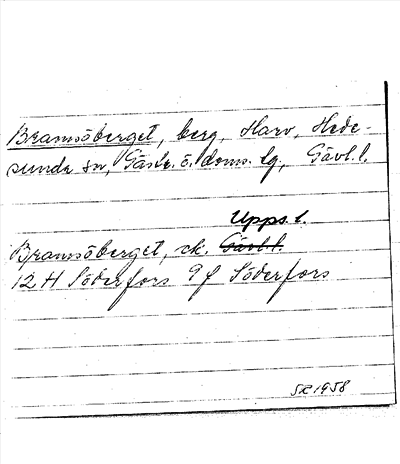 Bramsöberget, berg, Harv, Hede-
sunda sn, Gästr. ö. doms. lg, Gävl.l.
Upps.l.
Bramsöberget, ek. Gävl.l.
12 H Söderfors 9f Söderfors
SR 1958